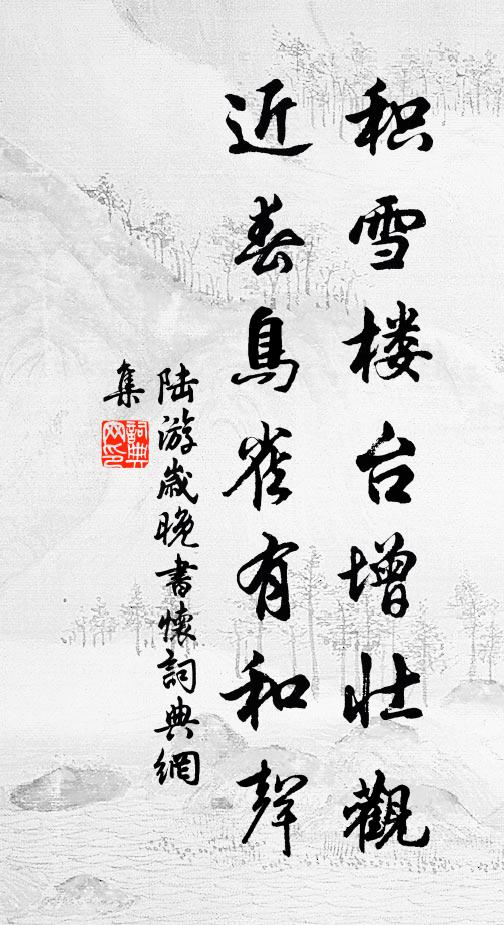 积雪楼台增壮觀
近春鳥雀有和聲
陆游歲晚書懷詞典網
集
詞典
网印